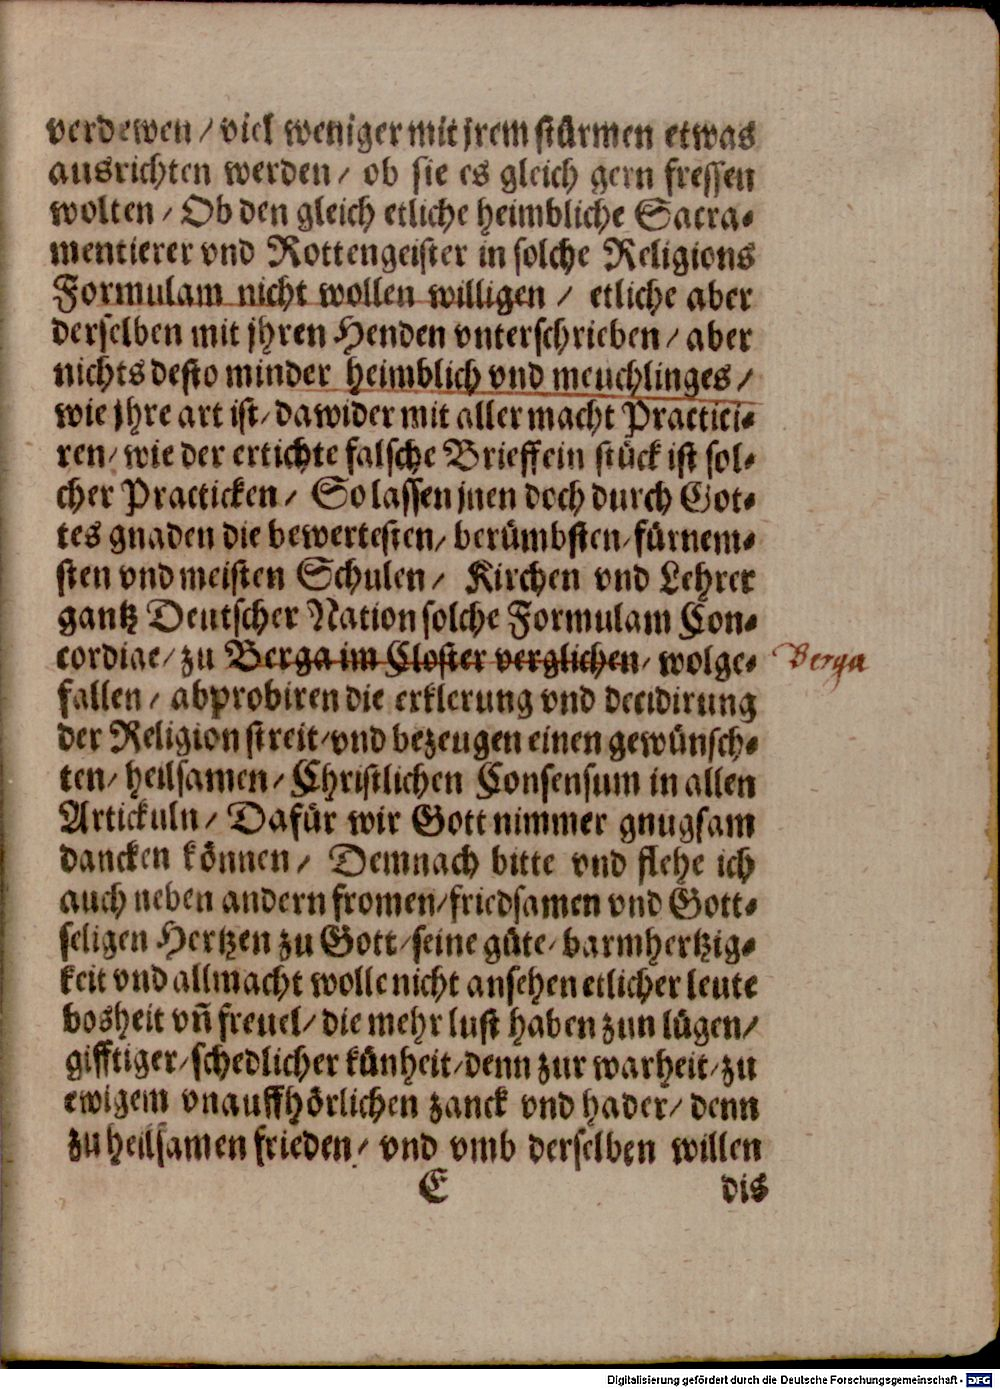 verdewen / viel weniger mit jrem stürmen etwas
ausrichten werden / ob sie es gleich gern fressen
wolten / Ob den gleich etliche heimbliche Sacra-
mentierer vnd Rottengeister in solche Religions
Formulam nicht wollen willigen / etliche aber
derselben mit jhren Henden vnterschrieben / aber
nichts desto minder heimblich vnd meuchlinges /
wie jhre art ist / dawider mit aller macht Practici-
ren / wie der ertichte falsche Brieff ein stück ist sol-
cher Practicken / So lassen jnen doch durch Got-
tes gnaden die bewertesten / berümbsten / fürnem-
sten vnd meisten Schulen / Kirchen vnd Lehrer
gantz Deutscher Nation solche Formulam Con-
cordiae / zu Berga im Closter verglichen / wolge- Berga
fallen / abprobiren die erklerung vnd decidirung
der Religion streit / vnd bezeugen einen gewünsch-
ten / heilsamen / Christlichen Consensum in allen
Artickuln / Dafür wir Gott nimmer gnugsam
dancken können / Demnach bitte vnd flehe ich
auch neben andern fromen / friedsamen vnd Gott-
seligen Hertzen zu Gott / seine güte / barmhertzig-
keit vnd allmacht wolle nicht ansehen etlicher leute
bosheit vñ freuel / die mehr lust haben zun lügen /
gifftiger / schedlicher künheit / denn zur warheit / zu
ewigem vnauffhörlichen zanck vnd hader / denn
zu heilsamen frieden / vnd vmb derselben willen
E dis
Digitalisierung gefördert durch die Deutsche Forschungsgemeinschaft - DFG